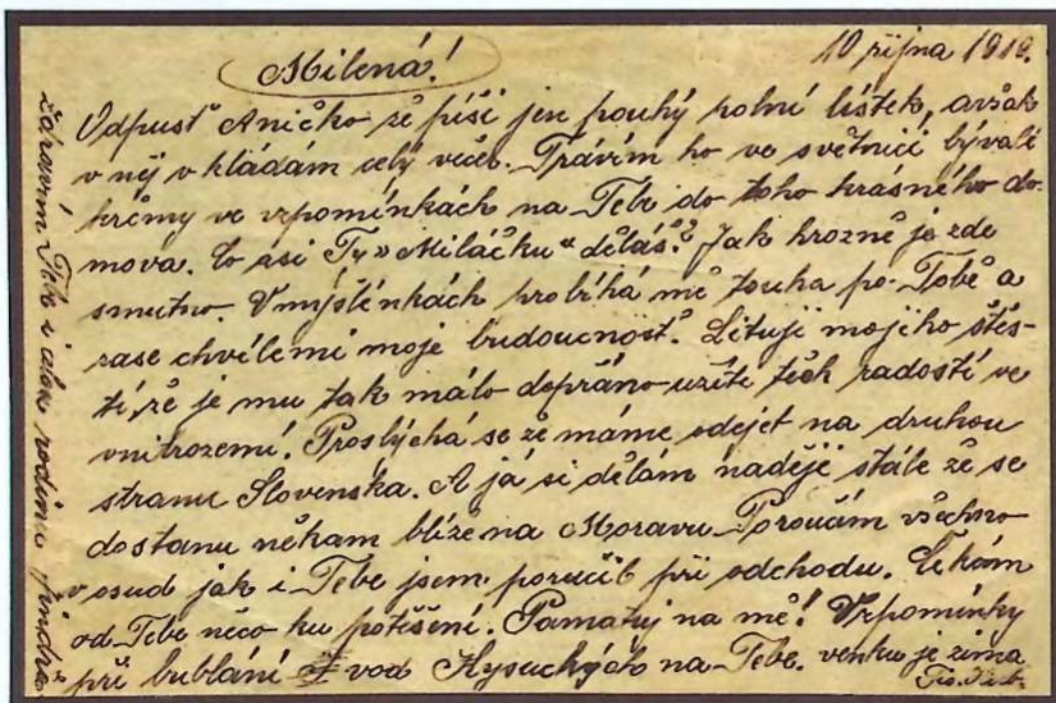 10 října 1919.
Milená!
Odpusť Aničko že píši jen pouhý polní lístek, avšak
v něj v kládám celý večer. Trávím ho ve světnici bývalé
krčmy ve vzpomínkách na Tebe do toho krásného do-
mova. Co asi Ty "Miláčku" děláš? Jak hrozně je zde
smutno. V myšlénkách probíhá mě touha po Tobě a
zase chvílemi moje budoucnosť. Lituji mojího štěs-
tí, že je mu tak málo dopřáno užíti těch radostí ve
vnitrozemí. Proslýchá se že máme odejet na druhou
stranu Slovenska. A já si dělám naději stále že se
dostanu někam blíže na Moravu. Poroučám všechno
v osud jak i Tebe jsem poručil při odchodu. Čekám
od Tebe něco ku potěšení. Pamatuj na mě! Vzpomínky
při bublání vod Kysuckých na Tebe. venku je zima
Zdravím Tebe i celou rodinu Jindřich